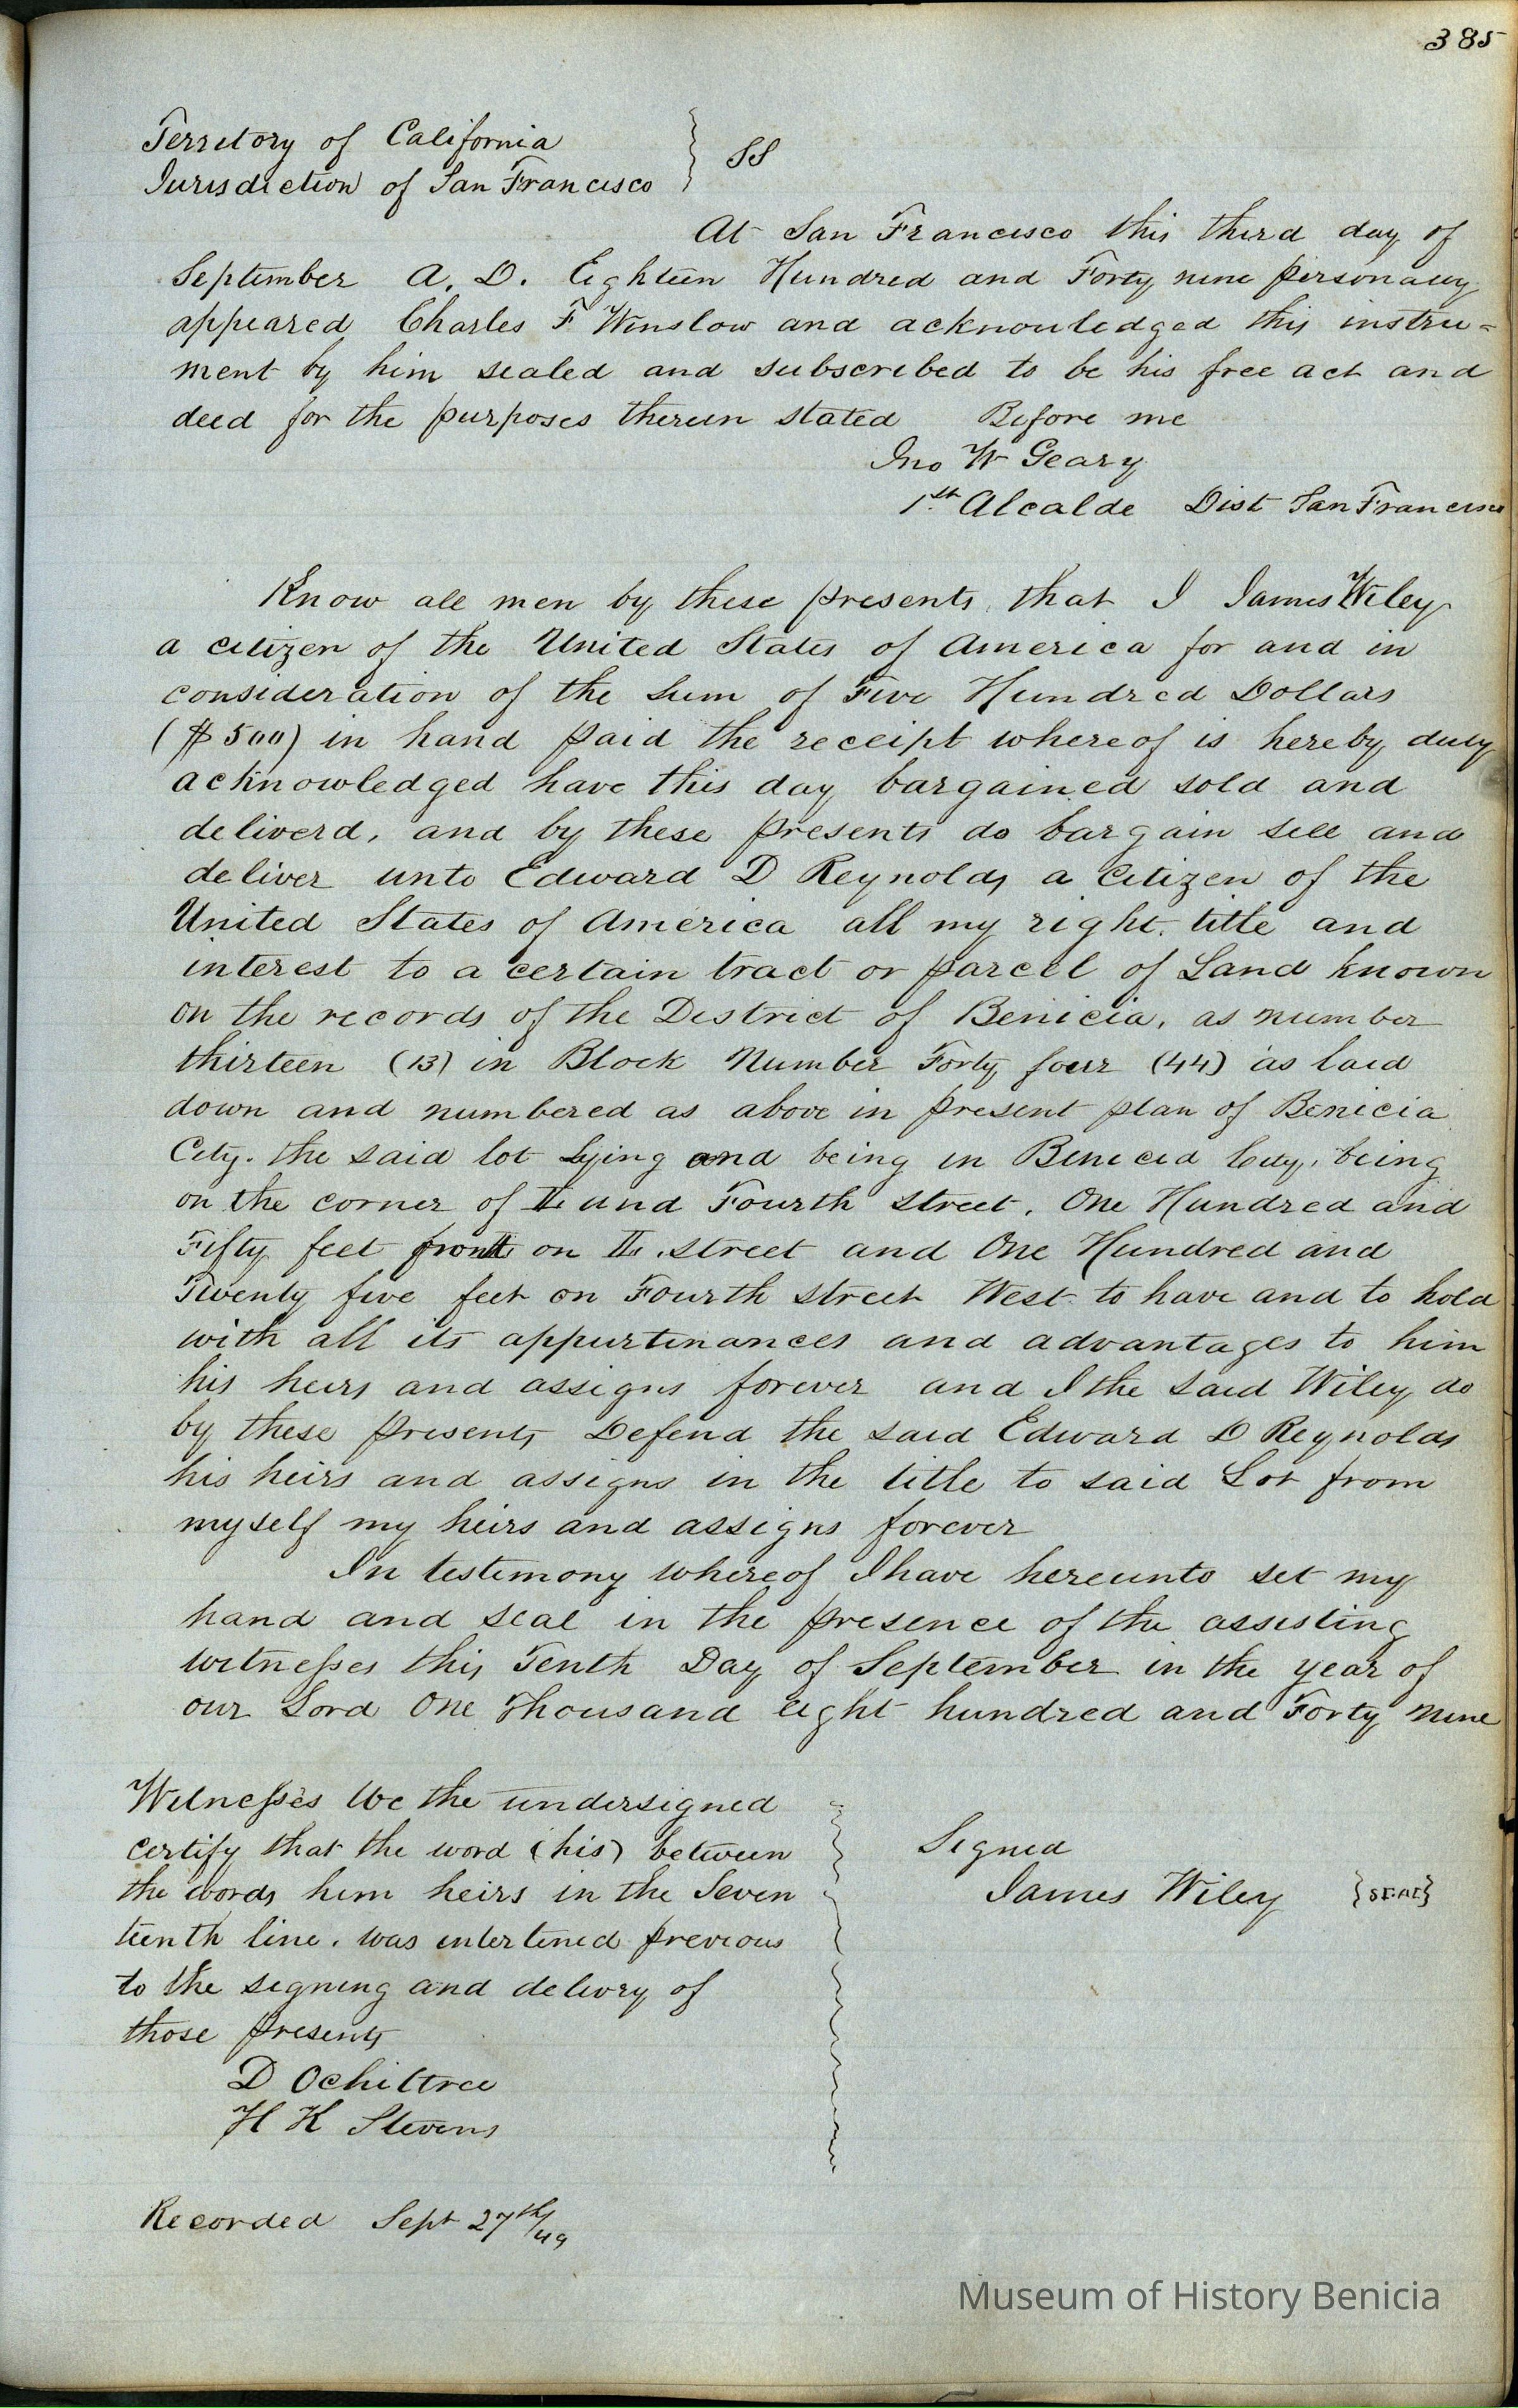 385
Territory of California
Jurisdiction of San Francisco } SS
At San Francisco this third day of
September A. D. Eighteen Hundred and Forty nine personally
appeared Charles F Winslow and acknowledged this instru=
ment by him sealed and subscribed to be his free act and
deed for the purposes therein stated Before me
Jno W Geary
1st Alcalde Dist San Francisco
Know all men by these presents, that I James Wiley
a citizen of the United States of America for and in
consideration of the sum of Five Hundred Dollars
($500) in hand paid the receipt whereof is hereby duly
acknowledged have this day bargained sold and
deliverd, and by these presents do bargain sell and
deliver unto Edward D Reynolds a Citizen of the
United States of America all my right, title and
interest to a certain tract or parcel of Land known
on the records of the District of Benicia, as number
thirteen (13) in Block Number Forty four (44) as laid
down and numbered as above in present plan of Benicia
City. the said lot lying and being in Benicia City, being
on the corner of and Fourth street, One Hundred and
Fifty feet front on street and One Hundred and
Twenty five feet on Fourth street West to have and to hold
with all its appurtinances and advantages to him
his heirs and assigns forever and I the said Wiley do
by these presents Defend the said Edward D Reynolds
his heirs and assigns in the title to said Lot from
myself my heirs and assigns forever
In testimony whereof I have hereunto set my
hand and seal in the presence of the assisting
witnesses this Tenth Day of September in the year of
our Lord One Thousand eight hundred and Forty nine
Witnesses We the undersigned
certify that the word (his) between
the words him heirs in the Seven
teenth line, was interlined previous
to the signing and delivry of
those presents
D Ochiltree
H K Stevens
Signed
James Wiley {SEAL}
Recorded Sept 27th/49
Museum of History Benicia